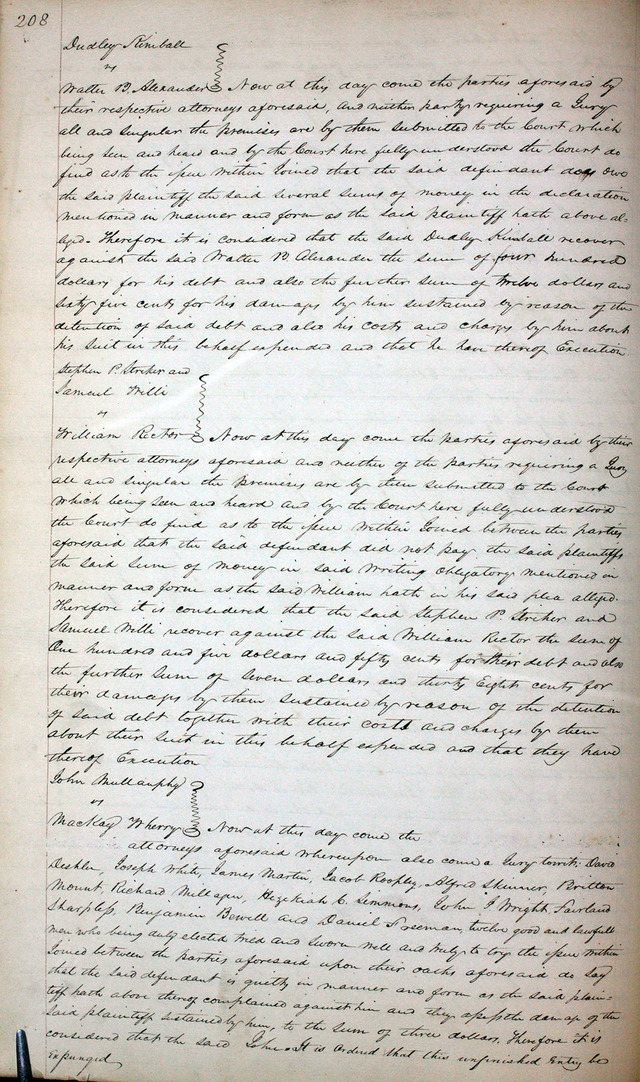 208
Dudley Kimball
vs
Walter B. Alexander Now at this day come the parties aforesaid by
their respective attorneys aforesaid, and neither party requiring a Jury
all and singular the premises are by them submitted to the Court which
being seen and heard and by the Court here fully understood the Court do
find as to the issue within Joined that the said defendant does owe
the said plaintiff the said several sums of money in the declaration
mentioned in manner and form as the said plaintiff hath above al-
leged. Therefore it is considered that the said Dudley Kimball recover
against the said Walter B Alexander the sum of four hundred
dollars for his debt and also the further sum of twelve dollars and
sixty five cents for his damages by him sustained by reason of the
detention of said debt and also his costs and charges by him about
his suit in this behalf expended and that he have thereof Execution
Stephen P. Striker and
Samuel Willi
vs
William Rector Now at this day come the parties aforesaid by their
respective attorneys aforesaid and neither of the parties requiring a Jury
all and singular the premises are by them submitted to the Court
which being seen and heard and by the Court here fully understood
the Court do find as to the issue within Joined between the parties
aforesaid that the said defendant did not pay the said plaintiffs
the said sum of money in said writing obligatory mentioned in
manner and form as the said William hath in his said plea alleged.
Therefore it is considered that the said Stephen P. Striker and
Samuel Willi recover against the said William Rector the sum of
One hundred and five dollars and fifty cents for their debt and also
the further sum of seven dollars and thirty Eight cents for
their damages by them sustained by reason of the detention
of said debt together with their costs and charges by them
about their suit in this behalf expended and that they have
thereof Execution
John Mullanphy
vs
MacKay Wherry Now at this day come the
attorneys aforesaid whereupon also come a Jury towit: David
Deshler, Joseph White, James Martin, Jacob Alfred Skinner, Britton
Mount, Richard Milligan, Hezekiah C. Simmons, John J Wright,
Sharpless, Benjamin Bewell and Daniel Freeman, twelve good and lawfull
men who being duly elected tried and sworn well and truly to try the issue within
Joined between the parties aforesaid upon their oaths aforesaid do say
that the said defendant is guilty in manner and form as the said plain-
tiff hath above thereof complained against him and they assess the damage of the
said plaintiff sustained by him, to the sum of three dollars. Therefore it is
considered that the said John. It is ordered that this unfinished Entry be
Expunged